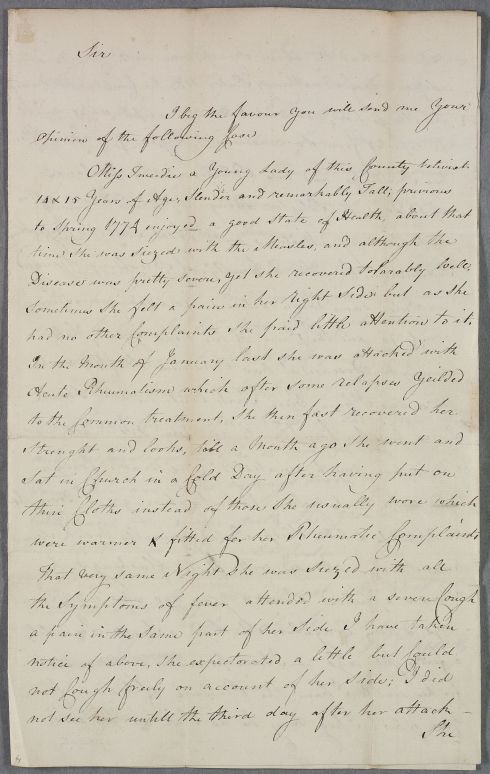 Sir
I beg the favour you will send me Your
opinion of the following Case
Miss Tweedie a Young Lady of this County betwixt
14 & 15 Years of Age, Slender and remarkably Tall, previous
to Spring 1774 enjoyed a good state of Health, about that
time She was Seized with the Measles, and although the
Disease was pretty severe, yet she recovered tolarably well,
Sometimes She felt a pain in her right Side but as She
had no other Complaints She paid little attention to it,
In the Month of January last she was attacked with
Acute Rheumatism which after some relapses Yeilded
to the Common treatment, She then fast recovered her
Strenght and looks, till a Month ago She went and
Sat in Church in a Cold Day after having put on
thin Cloths instead of those She usually wore which
were warmer & fitted for her Rheumatic Complaints
that very same Night She was Siezed with all
the Symptoms of fever attended with a severe Cough
a pain in the Same part of her Side I have taken
notice of above, She expectorated a little but could
not Cough freely on account of her Side; I did
not see her untill the third day after her attack –
She